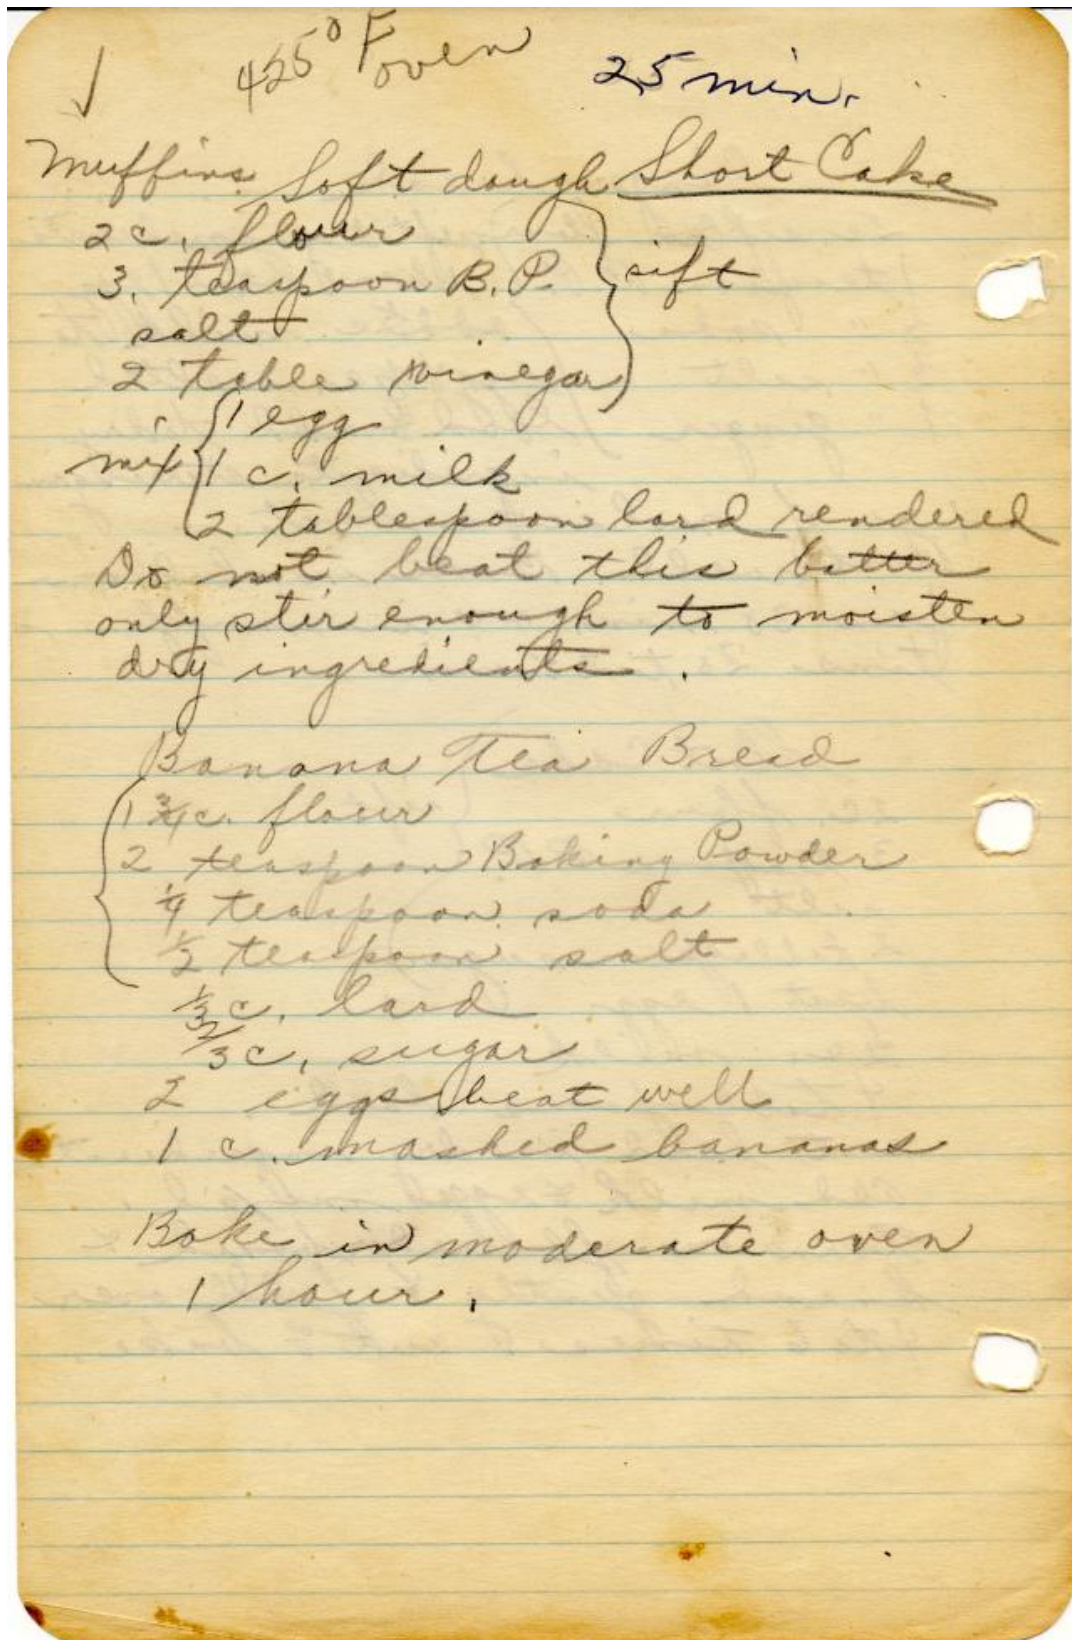 425° F oven 25 min.
Muffins Soft dough Short Cake
2 c. flour
3. teaspoon B.P. sift
salt
2 table vinegar
1 egg
mix 1 c. milk
2 tablespoon lard rendered
Do not beat this batter
only stir enough to moisten
dry ingredients.
Banana Tea Bread
1 3/4 c. flour
2 teaspoon Baking Powder
1/4 teaspoon soda
1/2 teaspoon salt
1/3 c. lard
2/3 c. sugar
2 eggs beat well
1 c. mashed bananas
Bake in moderate oven
1 hour.